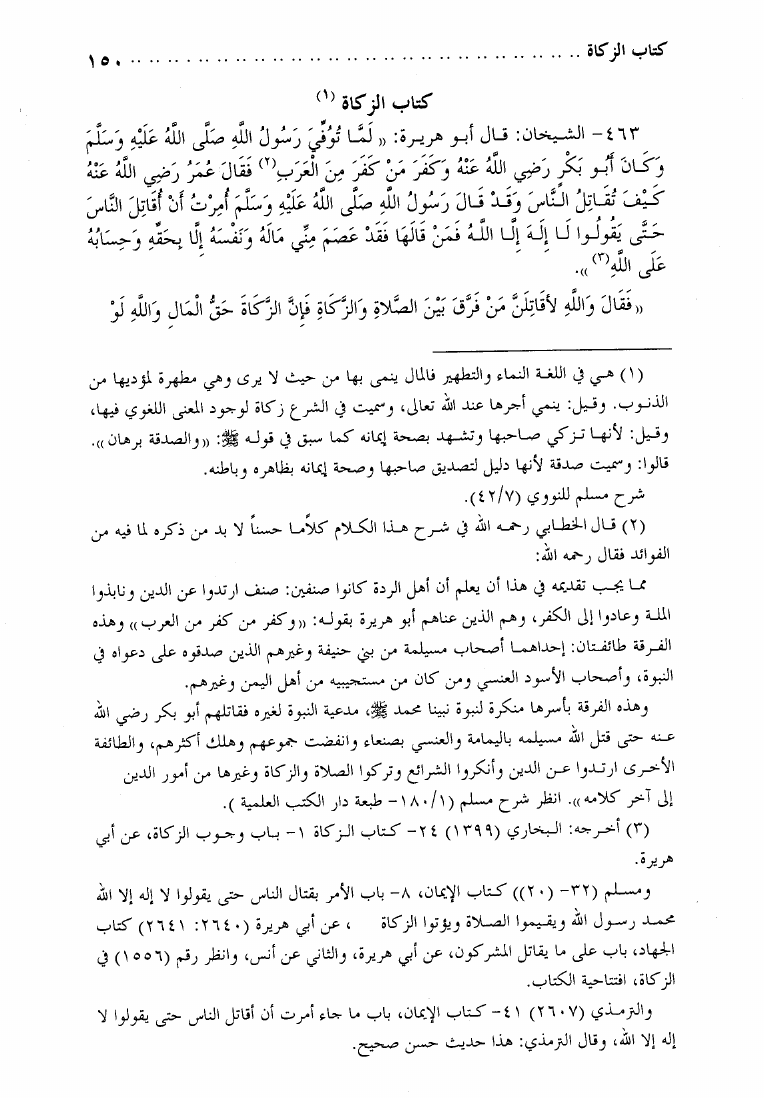 كتاب الزكاة .......................................................... ١٥٠
كتاب الزكاة (١)
٤٦٣- الشيخان: قال أبو هريرة: «لَمَّا تُوُفِّيَ رَسُولُ اللَّهِ صَلَّى اللَّهُ عَلَيْهِ وَسَلَّمَ
وَكَانَ أَبُو بَكْرٍ رَضِيَ اللَّهُ عَنْهُ وَكَفَرَ مَنْ كَفَرَ مِنَ الْعَرَبِ(٢) فَقَالَ عُمَرُ رَضِيَ اللَّهُ عَنْهُ
كَيْفَ تُقَاتِلُ النَّاسَ وَقَدْ قَالَ رَسُولُ اللَّهِ صَلَّى اللَّهُ عَلَيْهِ وَسَلَّمَ أُمِرْتُ أَنْ أُقَاتِلَ النَّاسَ
حَتَّى يَقُولُوا لَا إِلَهَ إِلَّا اللَّهُ فَمَنْ قَالَهَا فَقَدْ عَصَمَ مِنِّي مَالَهُ وَنَفْسَهُ إِلَّا بِحَقِّهِ وَحِسَابُهُ
عَلَى اللَّهِ(٣)».
«فَقَالَ وَاللَّهِ لأُقَاتِلَنَّ مَنْ فَرَّقَ بَيْنَ الصَّلاةِ وَالزَّكَاةِ فَإِنَّ الزَّكَاةَ حَقُّ الْمَالِ وَاللَّهِ لَوْ
(١) هي في اللغة النماء والتطهير فالمال ينمى بها من حيث لا يرى وهي مطهرة لمؤديها من
الذنوب. وقيل: ينمي أجرها عند الله تعالى، وسميت في الشرع زكاة لوجود المعنى اللغوي فيها،
وقيل: لأنها تزكي صاحبها وتشهد بصحة إيمانه كما سبق في قوله ﷺ: «والصدقة برهان».
قالوا: وسميت صدقة لأنها دليل لتصديق صاحبها وصحة إيمانه بظاهره وباطنه.
شرح مسلم للنووي (٤٢/٧).
(٢) قال الخطابي رحمه الله في شرح هذا الكلام كلامًا حسناً لا بد من ذكره لما فيه من
الفوائد فقال رحمه الله:
مما يجب تقديمه في هذا أن يعلم أن أهل الردة كانوا صنفين: صنف ارتدوا عن الدين ونابذوا
الملة وعادوا إلى الكفر، وهم الذين عناهم أبو هريرة بقوله: «وكفر من كفر من العرب» وهذه
الفرقة طائفتان: إحداهما أصحاب مسيلمة من بني حنيفة وغيرهم الذين صدقوه على دعواه في
النبوة، وأصحاب الأسود العنسي ومن كان من مستجيبيه من أهل اليمن وغيرهم.
وهذه الفرقة بأسرها منكرة لنبوة نبينا محمد ﷺ، مدعية النبوة لغيره فقاتلهم أبو بكر رضي الله
عنه حتى قتل الله مسيلمه باليمامة والعنسي بصنعاء وانفضت جموعهم وهلك أكثرهم، والطائفة
الأخرى ارتدوا عن الدين وأنكروا الشرائع وتركوا الصلاة والزكاة وغيرها من أمور الدين
إلى آخر كلامه». انظر شرح مسلم (١٨٠/١- طبعة دار الكتب العلمية ).
(٣) أخرجه: البخاري (١٣٩٩) ٢٤- كتاب الزكاة ١- باب وجوب الزكاة، عن أبي
هريرة.
ومسلم (٣٢- (٢٠)) كتاب الإيمان، ٨- باب الأمر بقتال الناس حتى يقولوا لا إله إلا الله
محمد رسول الله ويقيموا الصلاة ويؤتوا الزكاة ، عن أبي هريرة (٢٦٤٠: ٢٦٤١) كتاب
الجهاد، باب على ما يقاتل المشركون، عن أبي هريرة، والثاني عن أنس، وانظر رقم (١٥٥٦) في
الزكاة، افتتاحية الكتاب.
والترمذي (٢٦٠٧) ٤١- كتاب الإيمان، باب ما جاء أمرت أن أقاتل الناس حتى يقولوا لا
إله إلا الله، وقال الترمذي: هذا حديث حسن صحيح.